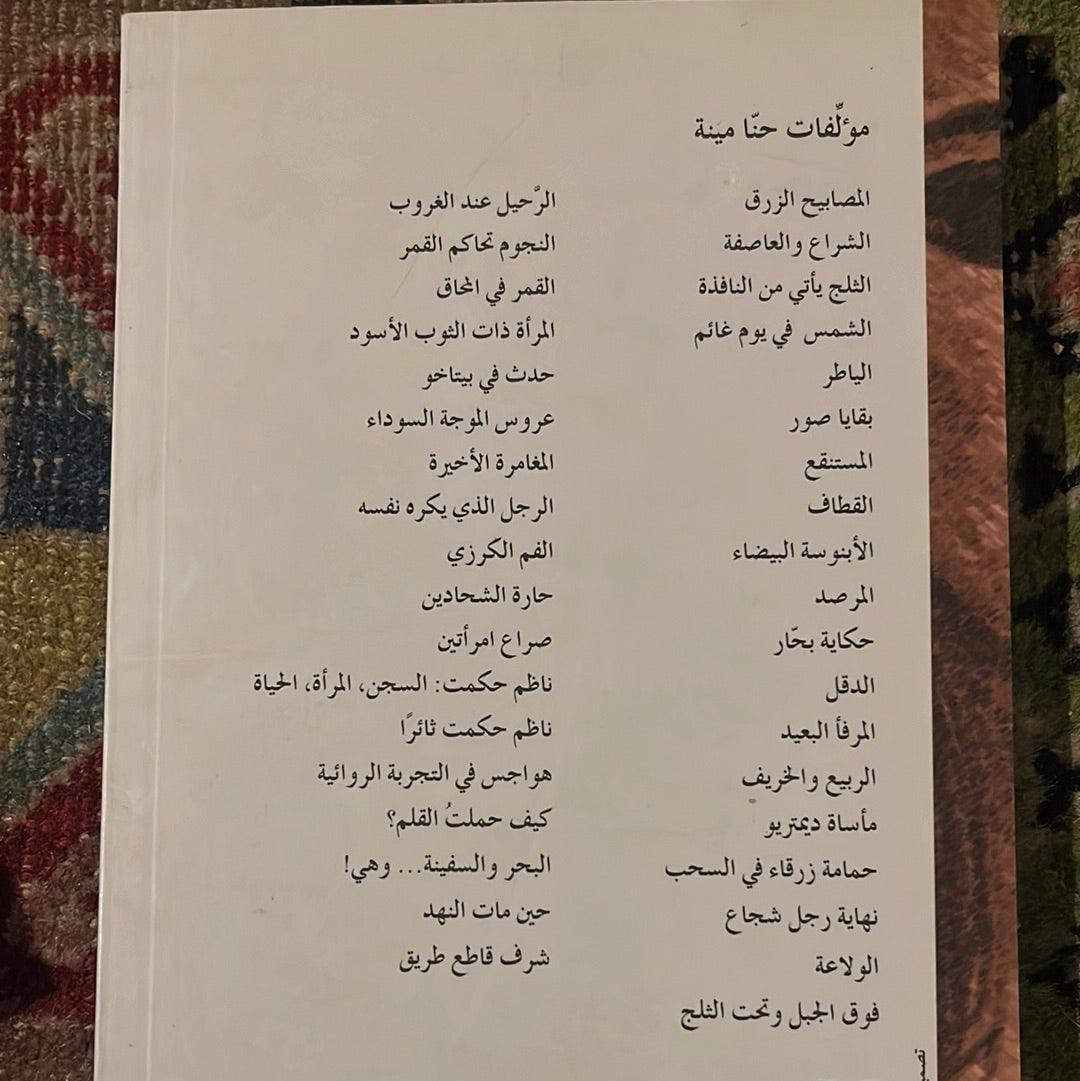 مؤلِّفات حنّا مينة
المصابيح الزرق
الشراع والعاصفة
الثلج يأتي من النافذة
الشمس في يوم غائم
الياطر
بقايا صور
المستنقع
القطاف
الأبنوسة البيضاء
المرصد
حكاية بحّار
الدقل
المرفأ البعيد
الربيع والخريف
مأساة ديمتريو
حمامة زرقاء في السحب
نهاية رجل شجاع
الولاعة
فوق الجبل وتحت الثلج
الرَّحيل عند الغروب
النجوم تحاكم القمر
القمر في المحاق
المرأة ذات الثوب الأسود
حدث في بيتاخو
عروس الموجة السوداء
المغامرة الأخيرة
الرجل الذي يكره نفسه
الفم الكرزي
حارة الشحادين
صراع امرأتين
ناظم حكمت: السجن، المرأة، الحياة
ناظم حكمت ثائرًا
هواجس في التجربة الروائية
كيف حملتُ القلم؟
البحر والسفينة... وهي!
حين مات النهد
شرف قاطع طريق